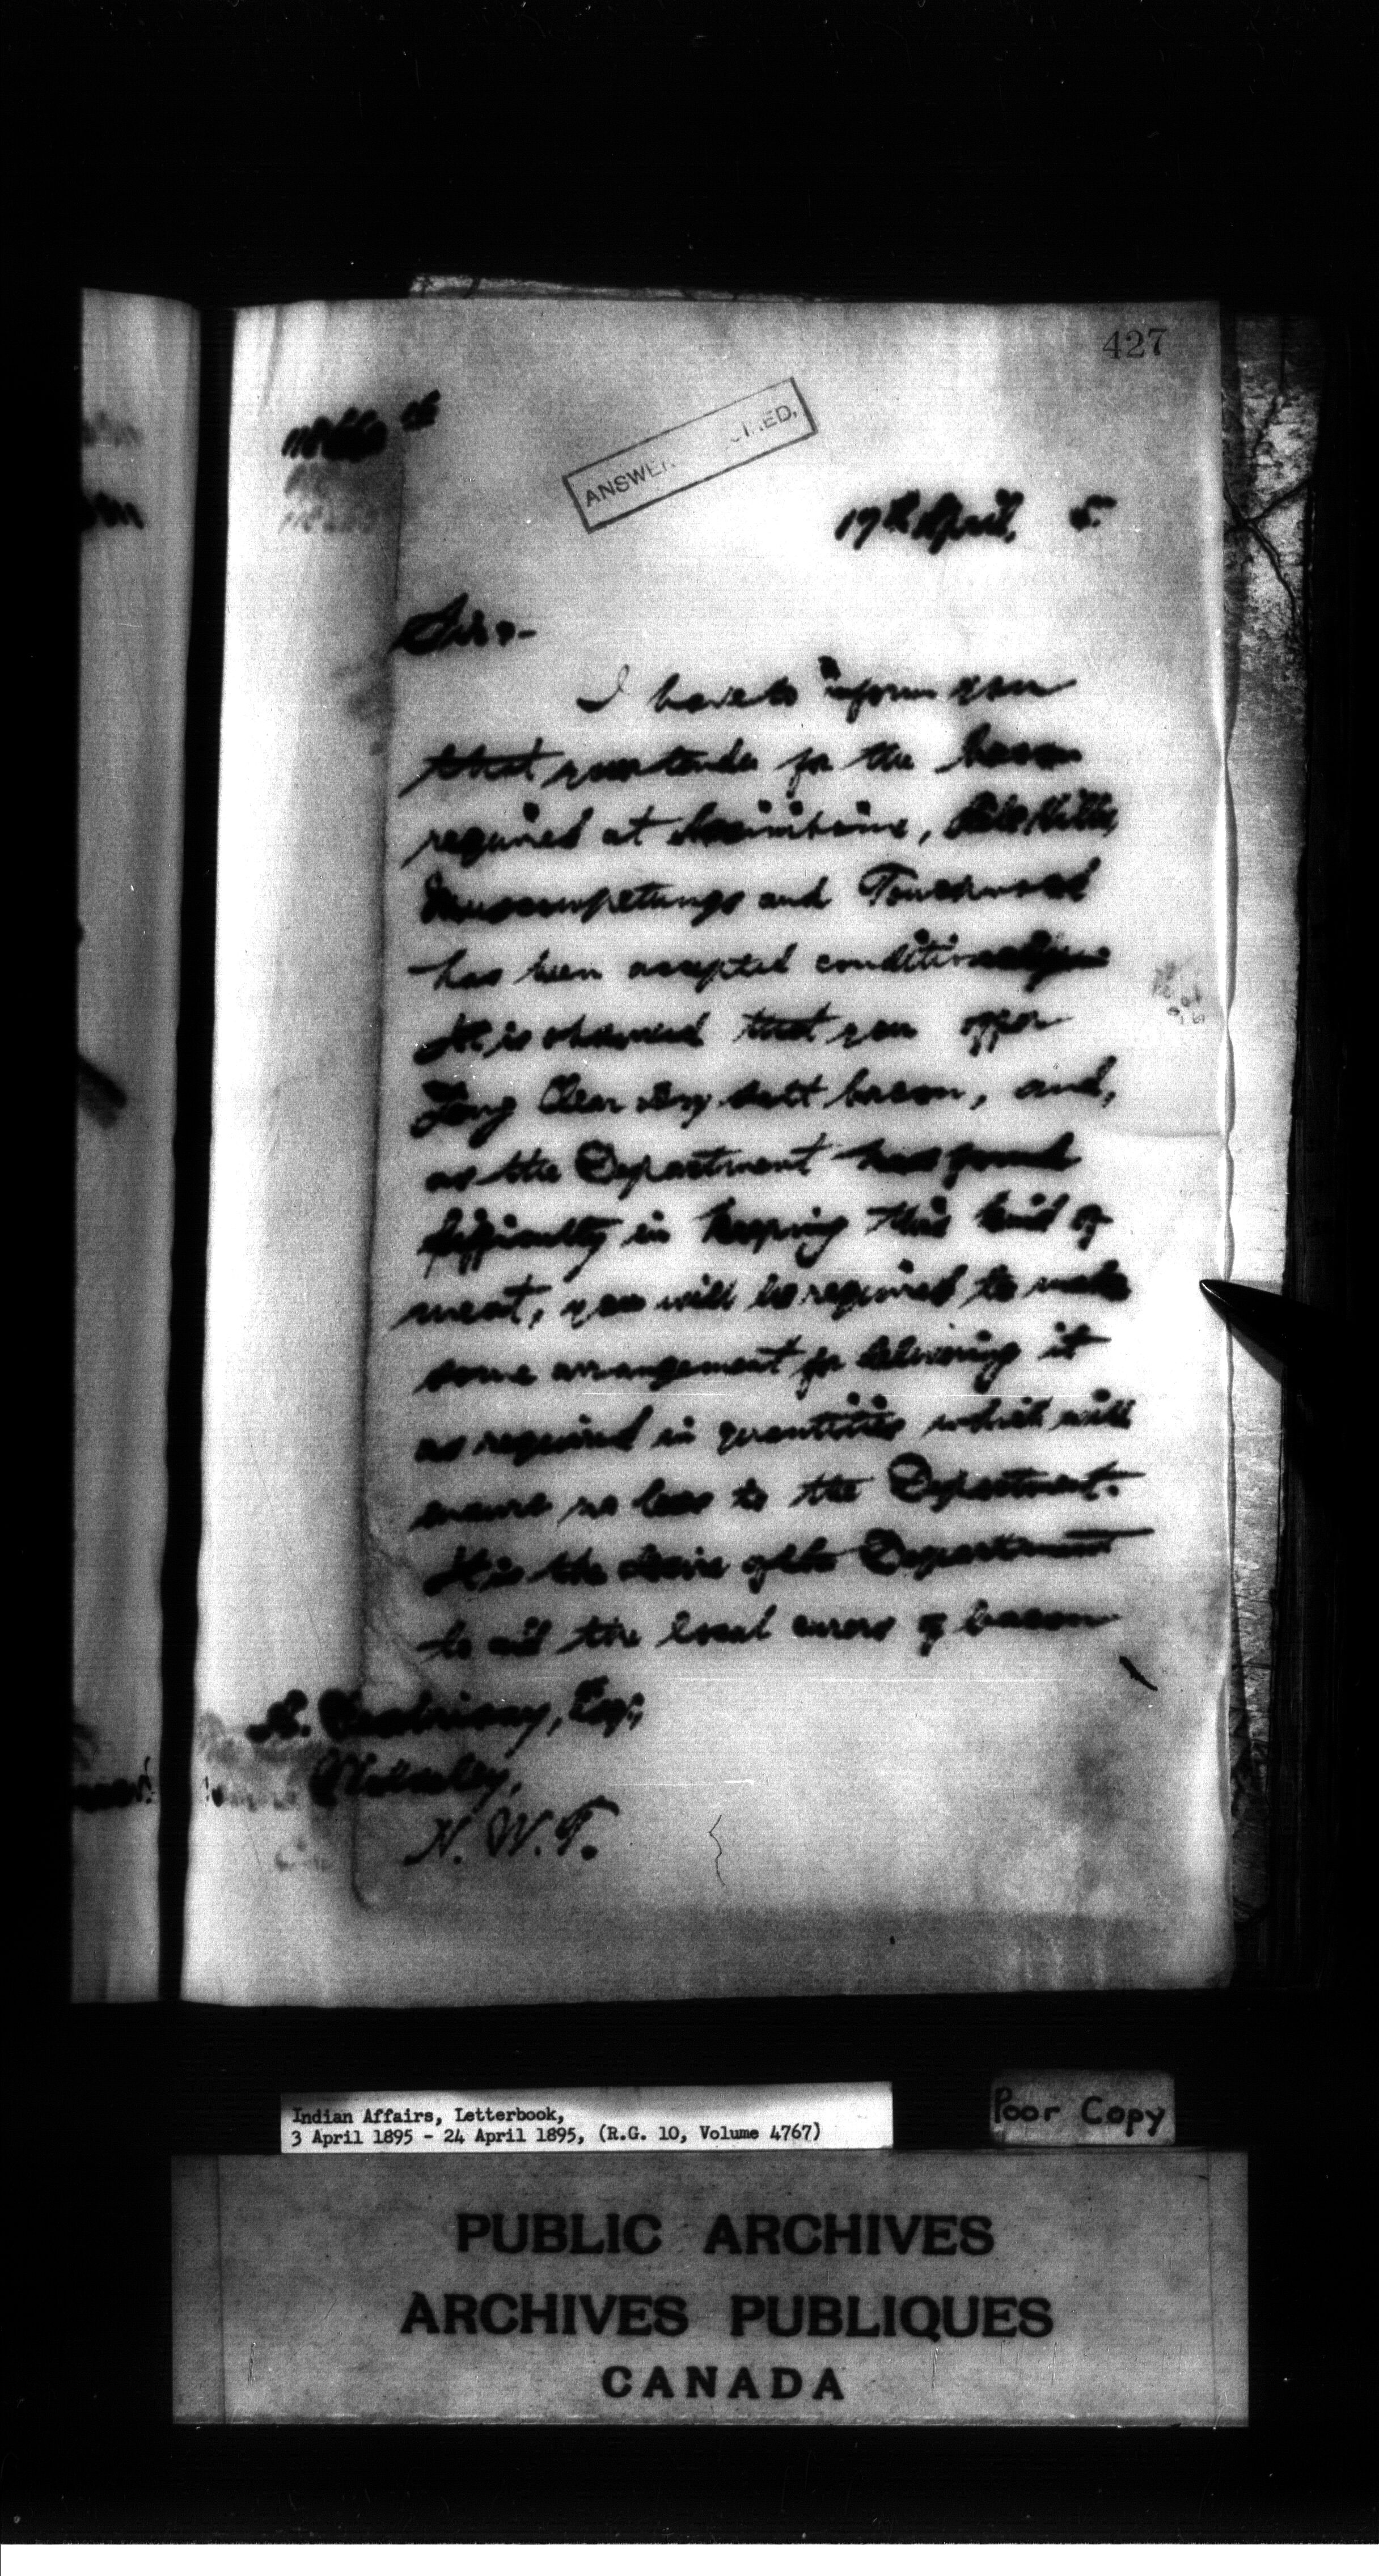 427
17th April, 5.
Sir:-
I have to inform you
that your tender for the bacon
required at Assiniboine, File Hills,
Muscowpetungs and Touchwood
has been accepted conditionally.
It is observed that you offer
Long Clear dry salt bacon, and,
as the Department has found
difficulty in keeping this kind of
meat, you will be required to make
some arrangement for delivering it
as required in quantities which will
ensure no loss to the Department.
It is the desire of the Department
to aid the local curers of bacon
Esq.,
N. W. T.
Indian Affairs, Letterbook,
3 April 1895 - 24 April 1895, (R.G. 10, Volume 4767)
Poor Copy
PUBLIC ARCHIVES
ARCHIVES PUBLIQUES
CANADA